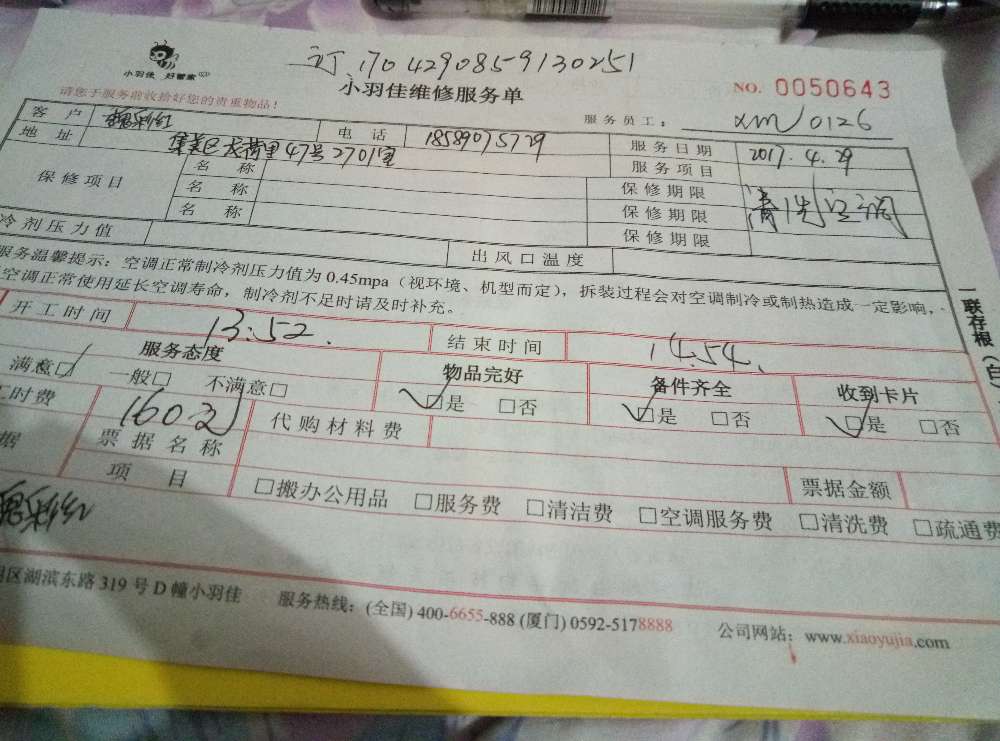 订 1704290859130251
小羽佳 好管家
小羽佳维修服务单
NO. 0050643
请您于服务前收拾好您的贵重物品!
服务员工: xm 0126
客户 魏彩红 电话 18589075729 服务日期 2017.4.29
地址 集美区 47号2701室 服务项目 清洗空调
保修项目 名称 保修期限
名称 保修期限
名称 保修期限
冷剂压力值 出风口温度
服务温馨提示: 空调正常制冷剂压力值为 0.45mpa (视环境、机型而定), 拆装过程会对空调制冷或制热造成一定影响,
空调正常使用延长空调寿命, 制冷剂不足时请及时补充。
开工时间 13:52. 结束时间 14.54.
服务态度 物品完好 备件齐全 收到卡片
满意□ 一般□ 不满意□ □是 □否 □是 □否 □是 □否
工时费 160元 代购材料费
据 票据名称 票据金额
项目 □搬办公用品 □服务费 □清洁费 □空调服务费 □清洗费 □疏通费
魏彩红
区湖滨东路 319 号 D 幢小羽佳 服务热线: (全国) 400-6655-888 (厦门) 0592-5178888 公司网站: www.xiaoyujia.com
一联存根 (白)